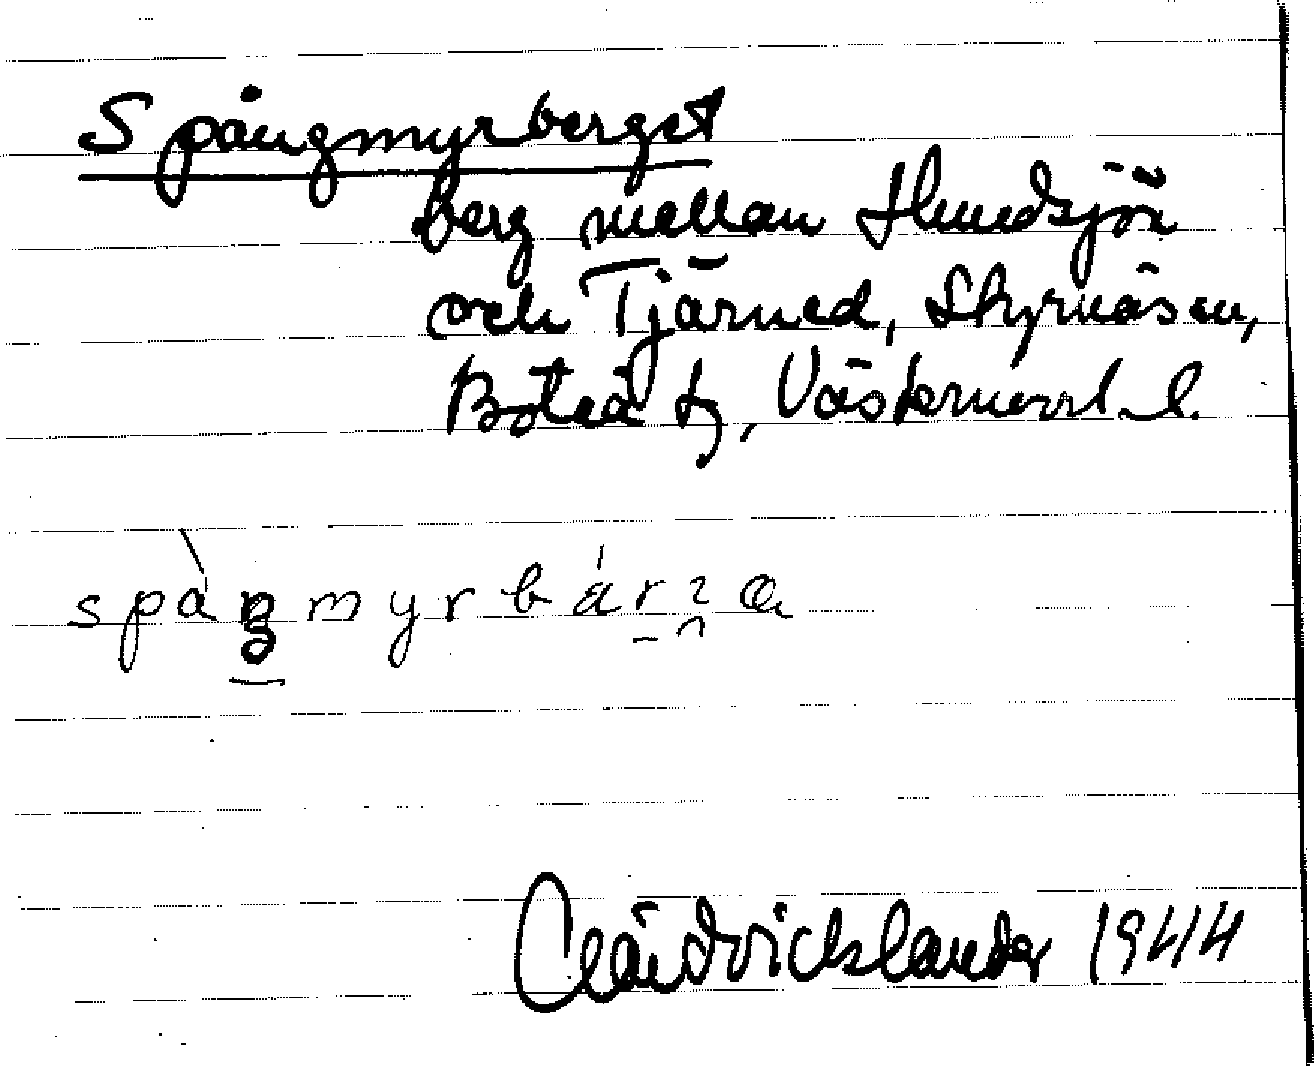 Spångmyrberget
berg mellan Hundsjön
och Tjärned, Skyrnäsen,
Boteå sn, Västernorrl. l.
spåŋmyrbárʒa
1944